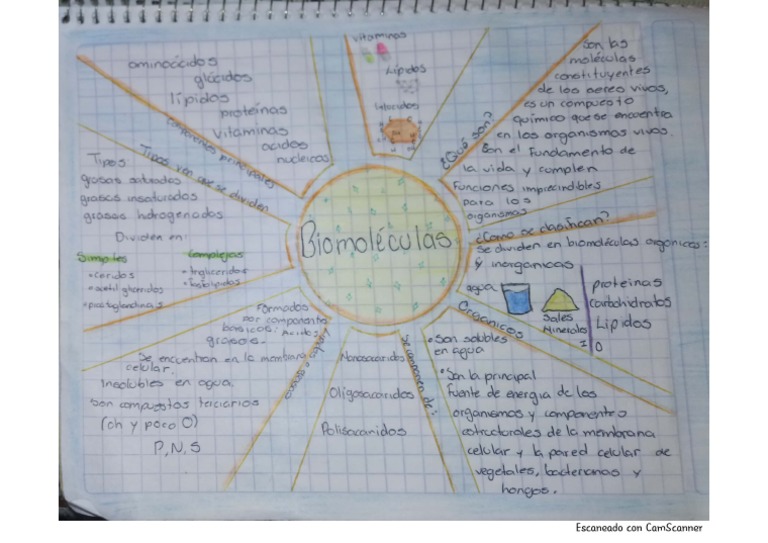 Biomoléculas
Vitaminas
Lípidos
¿Qué son?
Son las
moléculas
constituyentes
de los seres vivos,
es un compuesto
químico que se encuentra
en los organismos vivos.
Son el fundamento de
la vida y complen
funciones imprecindibles
para los
organismos
¿Como se clasifican?
Se dividen en biomoléculas organicas:
y inorganicas
agua
Sales
Minerales
I
proteinas
Carbohidratos
Lipidos
O
Organicos
• Son solubles
en agua
• Son la principal
fuente de energia de los
organismos y componentes
estructurales de la membrana
celular y la pared celular de
vegetales, bacterianas y
hongos.
Se componen de:
Monosacaridos
Oligosacaridos
Polisacaridos
Formados
por componentes
basicos: Acidos
grasos.
Se encuentran en la membrana
celular.
Insolubles en agua.
Son compuestos terciarios
(ch y poco O)
P, N, S
Tipos en que se dividen
Tipos
grasas saturadas
grasas insaturadas
grasas hidrogenadas
Dividen en:
Simples
• Ceridos
• acetil gliceridos
• prostaglandinas
Complejas
• trigliceridos
• fosfolipidos
Componentes principales
aminoácidos
glúcidos
lípidos
proteínas
Vitaminas
acidos
nucleicos
Escaneado con CamScanner